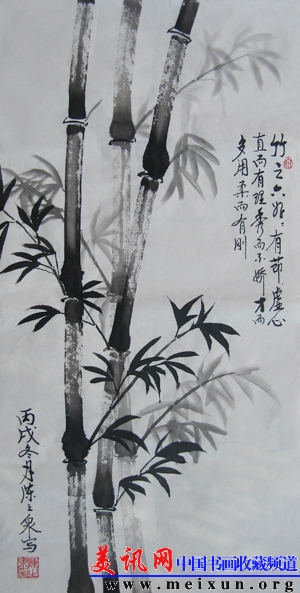 竹之六好：有節虚心
直而有理秀而不娇才而
多用柔而有刚
丙戌冬月陈之泉写
美讯网 中国书画收藏频道
www.meixun.org